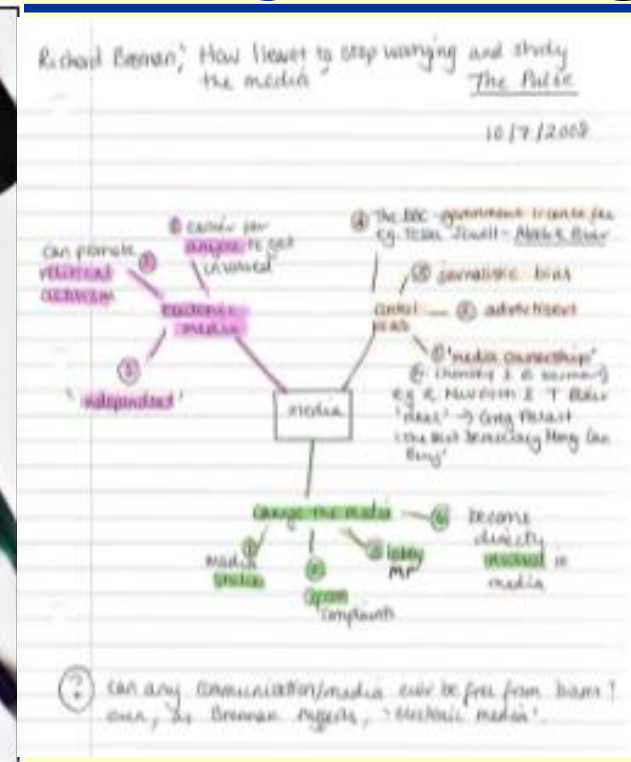 Richard Brennan, 'How I learnt to stop worrying and study
the media'
The Pulse
10/7/2008
① easier for
anyone to get
involved
can promote ②
political
activism
electronic
media
③
'independent'
④ The BBC - government license fee
eg. Tessa Jowell -
③ journalistic bias
② advertisers
① 'media ownership'
eg R Murdoch & T Blair
'deal' → Greg Palast
'The Best Democracy Money Can
Buy'
media
change the media
① media
studies
② Ofcom
complaints
③ lobby
MP
④ become
directly
involved in
media
? can any communication/media ever be free from biases?
even, as Brennan suggests, 'electronic media'.